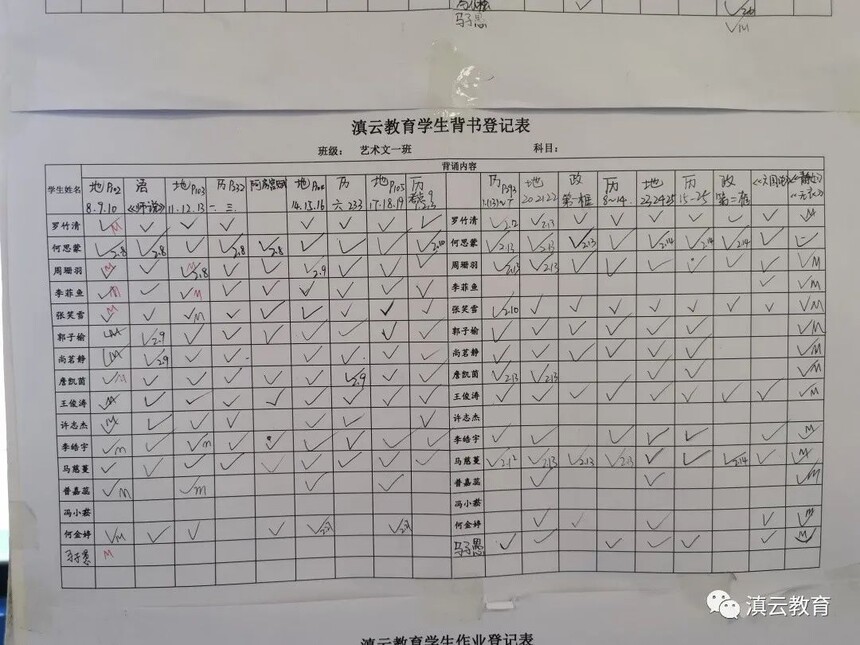 马子恩
滇云教育学生背书登记表
班级： 艺术文一班 科目：
学生姓名 背诵内容
地P102 语 地P103 历P232 阿房宫赋 地P104 历 地P105 历 历P393 地 政 历 地 历 政
8.9.10 《师说》 11.12.13 一.三. 14.15.16 六.233 17.18.19 20.21.22 第一框 8~14. 23.24.25 15~25 第二框
罗竹清 M 罗竹清 2.12 2.13 M
何思蒙 2.8 2.8 2.8 2.8 2.10 何思蒙 2.13 2.13 2.13 2.14 2.14 2.14
周珊羽 M M 2.8 2.9 周珊羽 2.13 2.13 M
李菲鱼 M M 李菲鱼 M
张笑雪 M M 张笑雪 2.10 M
郭子榆 M 2.9 郭子榆 M
尚茗静 M 2.9 尚茗静 M
詹凯茵 M 2.9 詹凯茵 2.13 2.13 M
王俊涛 M 王俊涛 M
许志杰 M 许志杰
李皓宇 M M 李皓宇 M
马慈蔓 马慈蔓 2.12 2.13 2.13 2.13 2.14 M
普嘉蕊 M M 普嘉蕊 M
冯小蔡 冯小蔡
何金婷 M 何金婷 M
马子恩 M 马子恩 M
滇云教育
滇云教育学生作业登记表